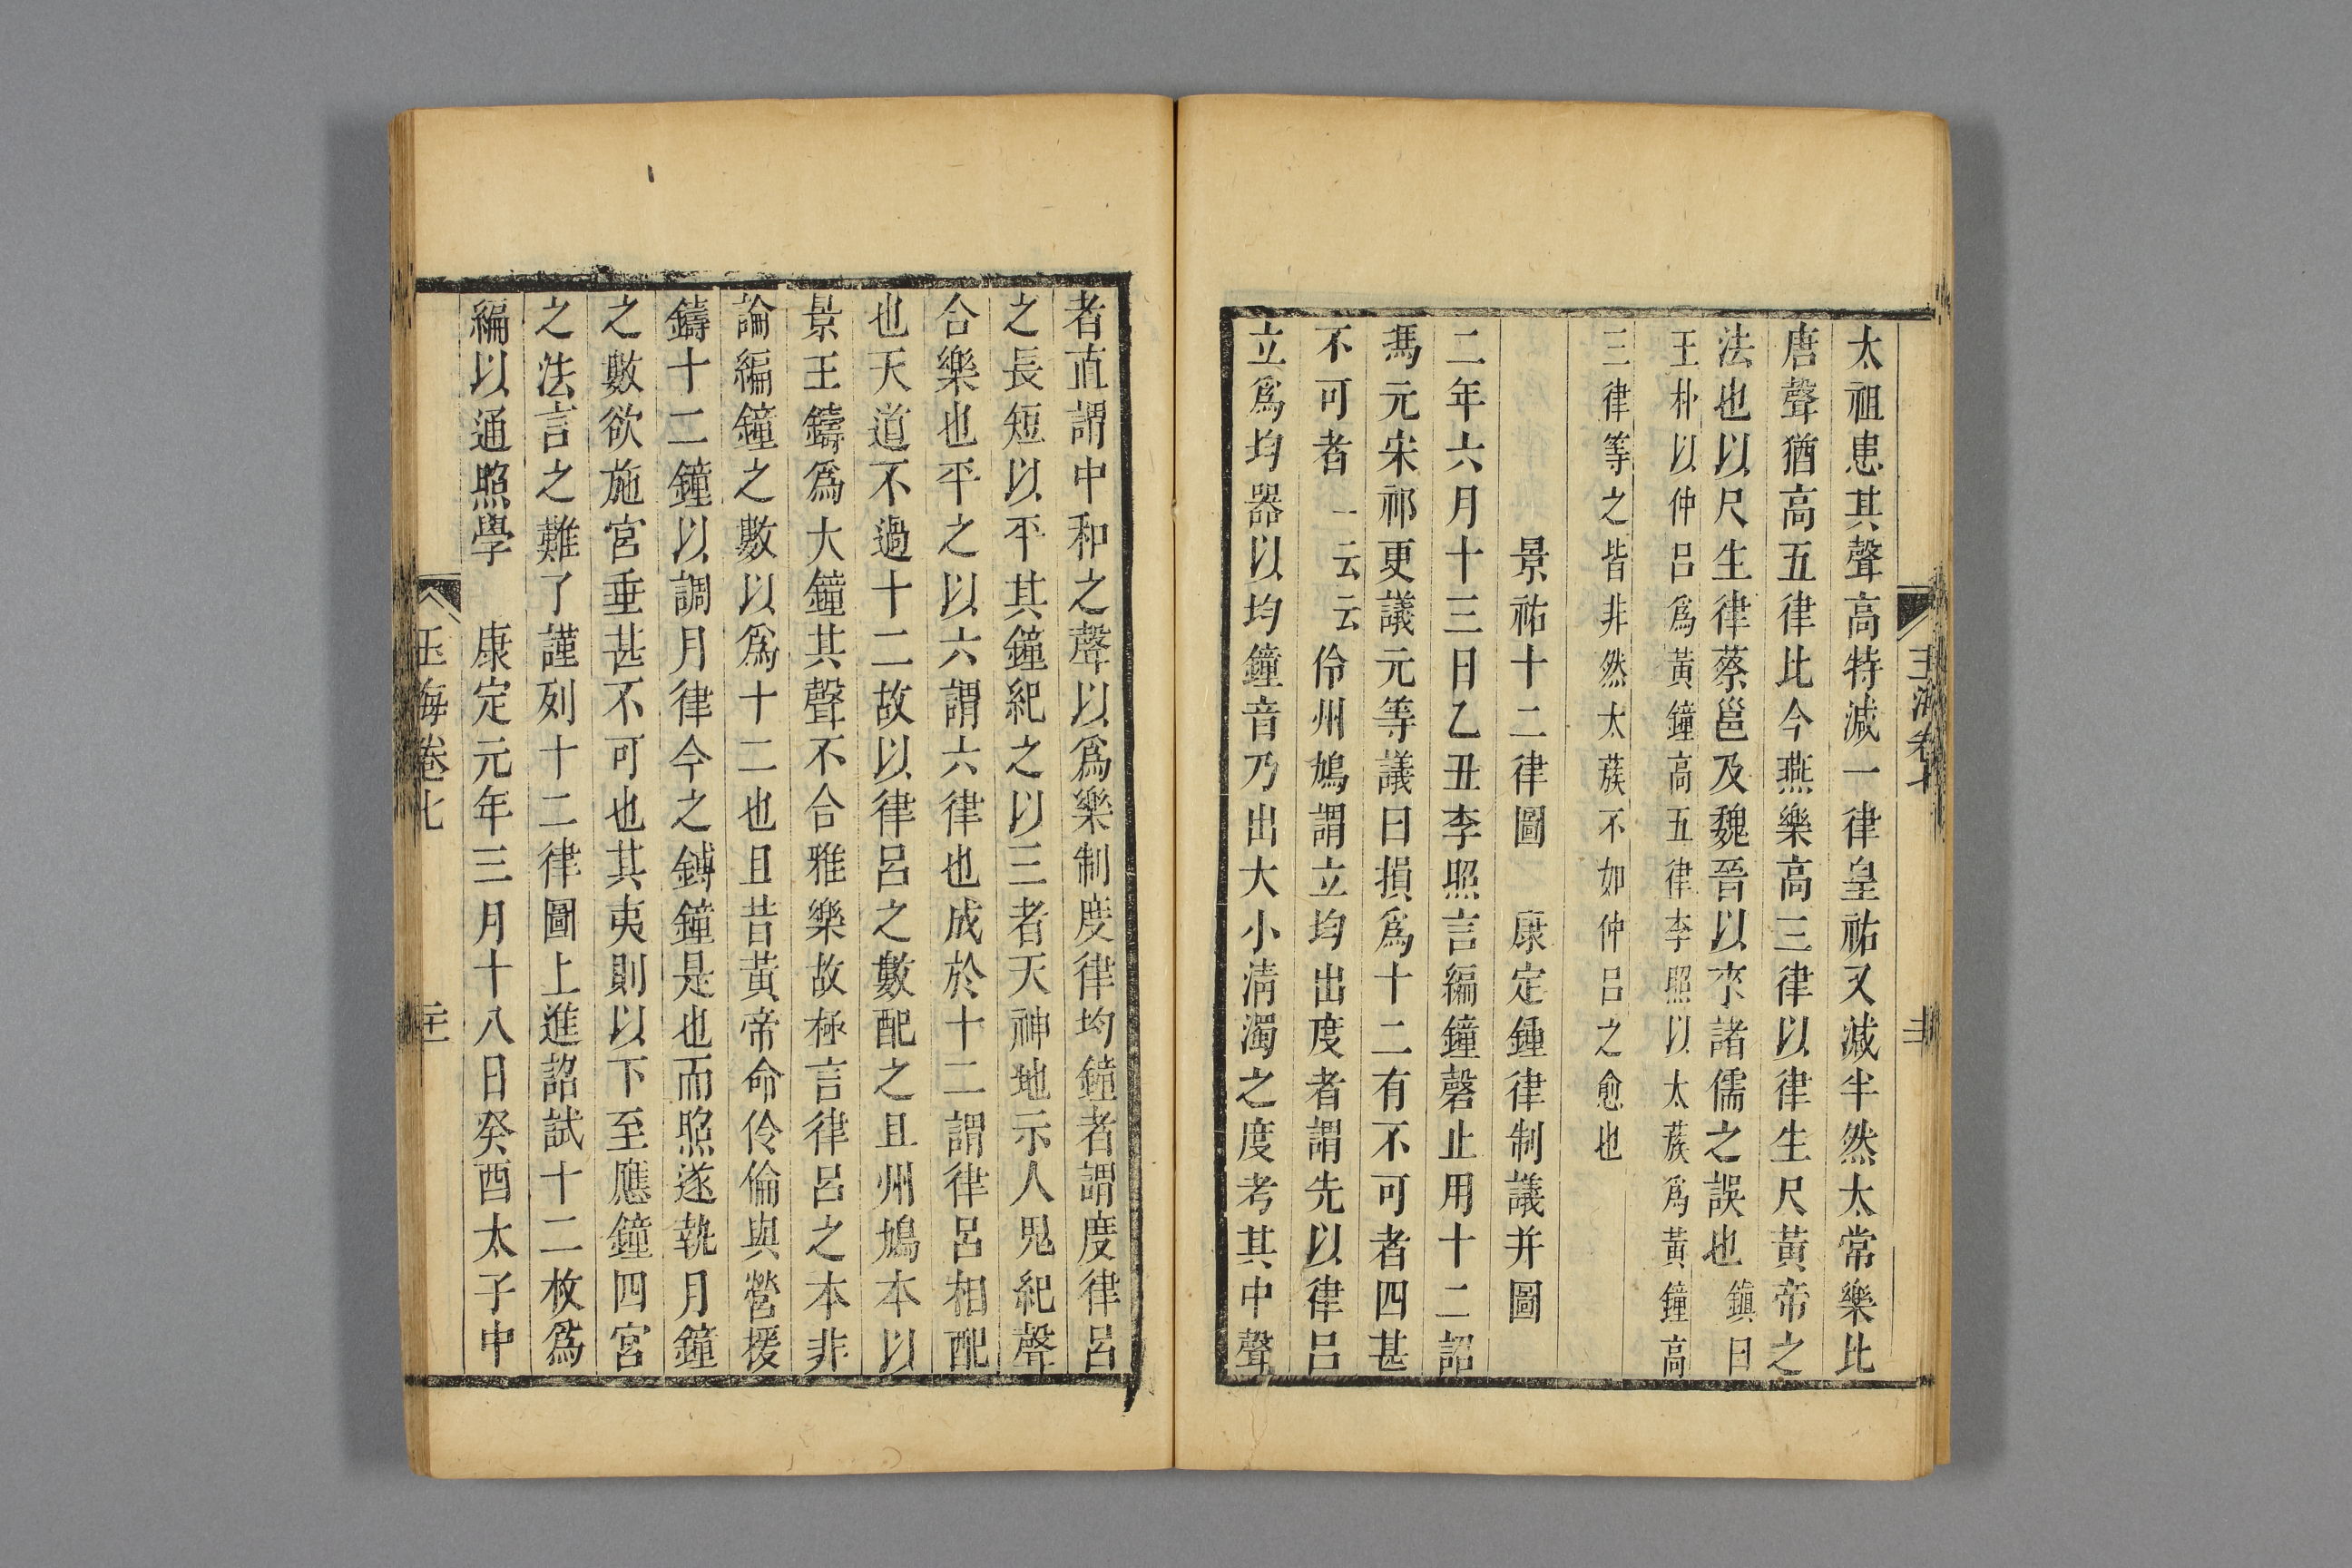 太祖患其聲高特減一律皇祐又減半然太常樂比
唐聲猶高五律比今燕樂高三律以律生尺黃帝之
法也以尺生律蔡邕及魏晉以來諸儒之誤也 鎮曰
王朴以仲呂爲黃鐘高五律李照以太蔟爲黃鐘高
三律等之皆非然太蔟不如仲呂之愈也
景祐十二律圖 康定鍾律制議并圖
二年六月十三日乙丑李照言編鐘磬止用十二詔
馮元宋祁更議元等議曰損爲十二有不可者四甚
不可者一云云伶州鳩謂立均出度者謂先以律呂
立爲均器以均鐘音乃出大小淸濁之度考其中聲
者直謂中和之聲以爲樂制度律均鐘者謂度律呂
之長短以平其鐘紀之以三者天神地示人鬼紀聲
合樂也平之以六謂六律也成於十二謂律呂相配
也天道不過十二故以律呂之數配之且州鳩本以
景王鑄爲大鐘其聲不合雅樂故極言律呂之本非
論編鐘之數以爲十二也且昔黃帝命伶倫與營援
鑄十二鐘以調月律今之鎛鐘是也而照遂執月鐘
之數欲施宮垂甚不可也其夷則以下至應鐘四宮
之法言之難了謹列十二律圖上進詔試十二枚爲
編以通照學 康定元年三月十八日癸酉太子中
玉海卷七